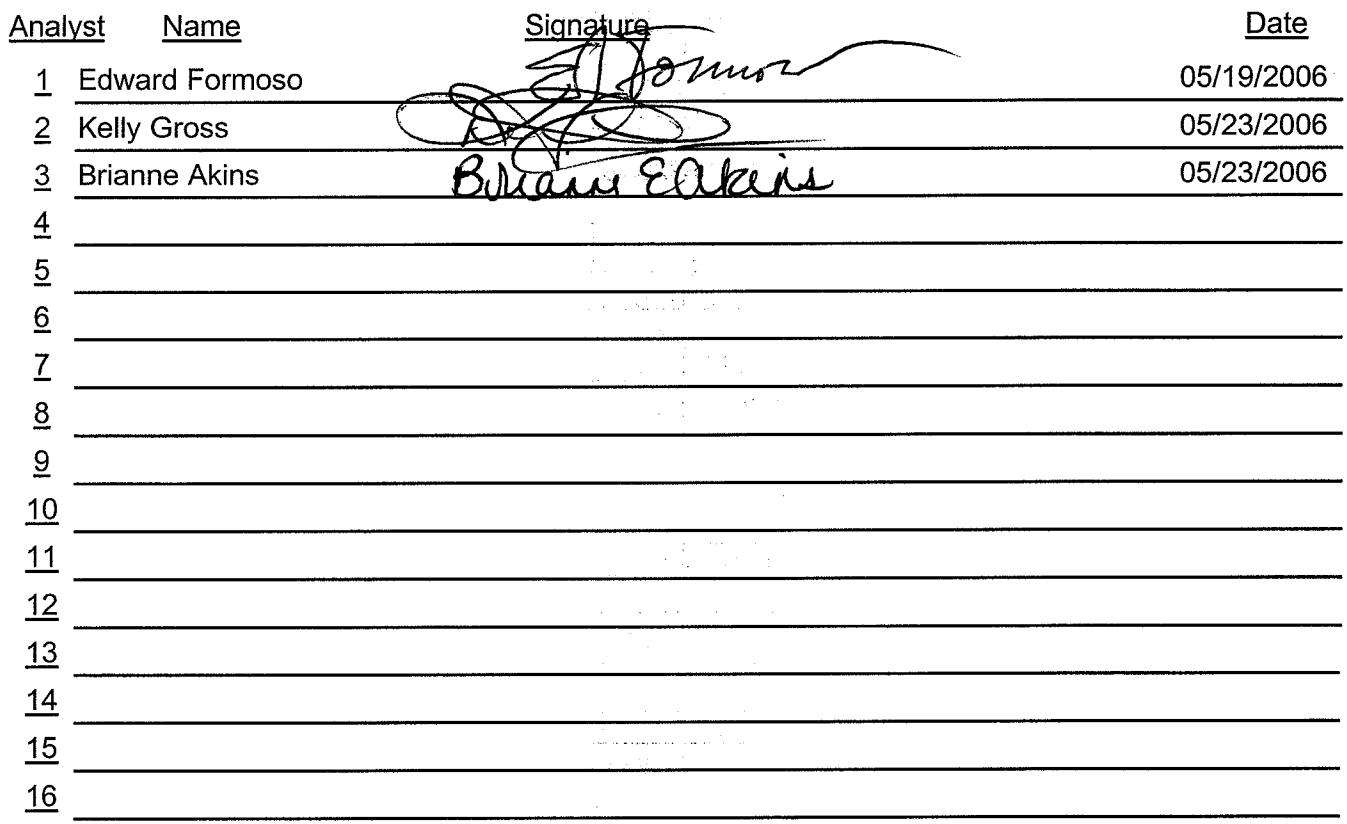 Analyst Name Signature Date
1 Edward Formoso 05/19/2006
2 Kelly Gross 05/23/2006
3 Brianne Akins Brianne E Akins 05/23/2006
4
5
6
7
8
9
10
11
12
13
14
15
16